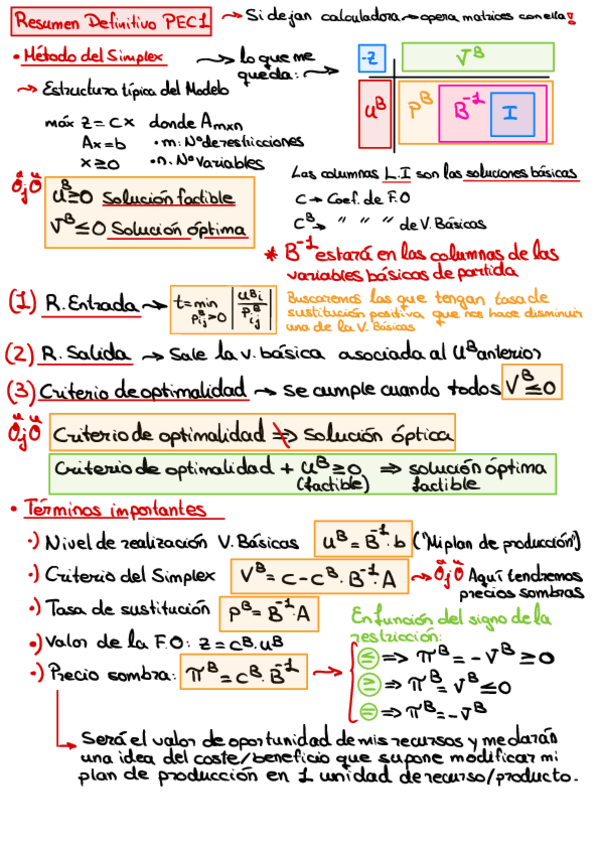 Resumen Definitivo PEC1 → Si dejan calculadora → opera matrices con ella!
• Método del Simplex → lo que me queda: →
-Z V^B
u^B P^B B^-1 I
→ Estructura típica del Modelo
máx Z = C x donde A mxn
Ax = b • m: Nº de restricciones
x ≥ 0 • n. Nº variables
Las columnas L.I son las soluciones básicas
C → Coef. de F.O
C^B → " " " de V. Básicas
OjO
u^B ≥ 0 Solución factible
V^B ≤ 0 Solución óptima
* B^-1 estará en las columnas de las
variables básicas de partida
(1) R. Entrada → t = min P^B ij > 0 | u^B i / P^B ij |
Buscaremos las que tengan tasa de
sustitución positiva que nos hace disminuir
una de la V. Básicas
(2) R. Salida → Sale la v. básica asociada al u^B anterior
(3) Criterio de optimalidad → se cumple cuando todos V^B ≤ 0
OjO Criterio de optimalidad ⇏ Solución óptica
Criterio de optimalidad + u^B ≥ 0 ⇒ solución óptima
(factible) factible
• Términos importantes
•) Nivel de realización V. Básicas u^B = B^-1 · b ("Mi plan de producción")
•) Criterio del Simplex V^B = C - C^B · B^-1 · A → OjO Aquí tendremos
precios sombras
•) Tasa de sustitución P^B = B^-1 · A
•) Valor de la F.O: Z = C^B · u^B
•) Precio sombra: π^B = C^B · B^-1 →
En función del signo de la
restricción:
≤ ⇒ π^B = - V^B ≥ 0
≥ ⇒ π^B = V^B ≤ 0
= ⇒ π^B = - V^B
→ Será el valor de oportunidad de mis recursos y me darán
una idea del coste/beneficio que supone modificar mi
plan de producción en 1 unidad de recurso/producto.